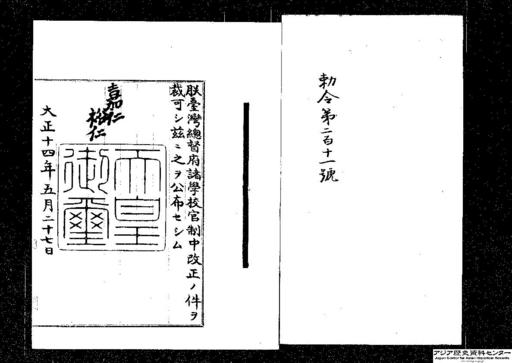 勅令第二百十一號
朕臺灣總督府諸學校官制中改正ノ件ヲ
裁可シ茲ニ之ヲ公布セシム
嘉仁
裕仁
天皇
御璽
大正十四年五月二十七日
アジア歴史資料センター
Japan Center for Asian Historical Records